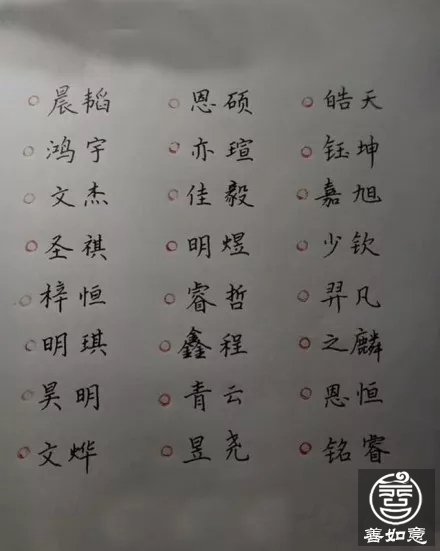 晨韬 恩硕 皓天
鸿宇 亦瑄 钰坤
文杰 佳毅 嘉旭
圣祺 明煜 少钦
梓恒 睿哲 羿凡
明琪 鑫程 之麟
昊明 青云 恩恒
文烨 昱尧 铭睿
善如意